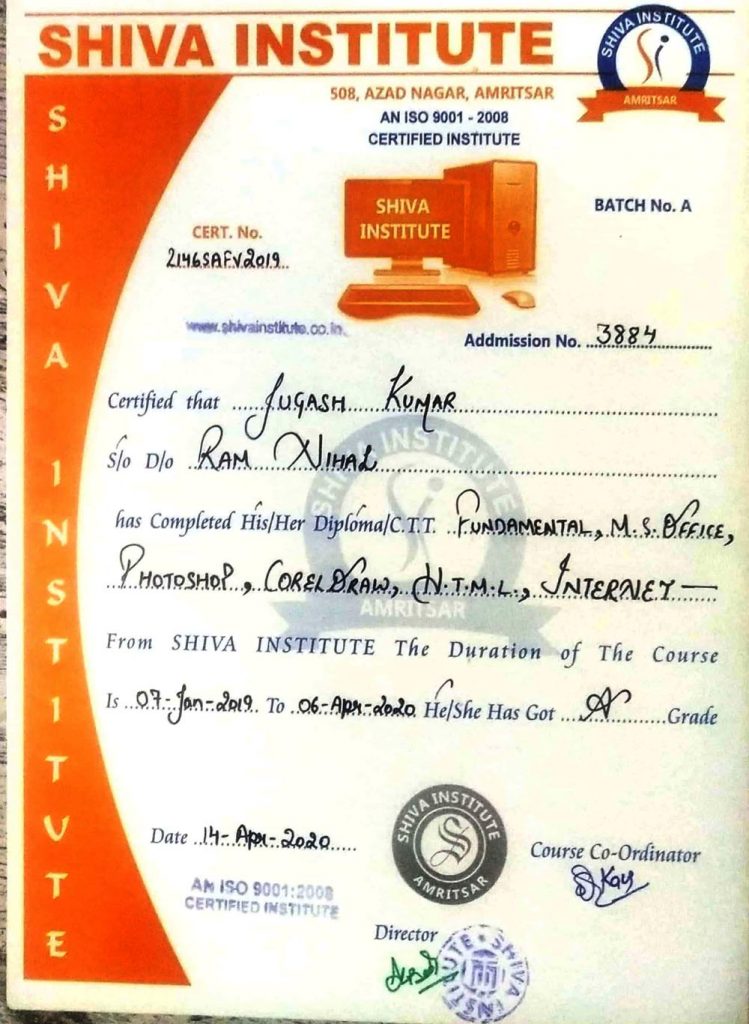 SHIVA INSTITUTE
SHIVA INSTITUTE
AMRITSAR
508, AZAD NAGAR, AMRITSAR
AN ISO 9001 - 2008
CERTIFIED INSTITUTE
SHIVA
INSTITUTE
BATCH No. A
CERT. No.
2146SAFV2019
www.shivainstitute.co.in
Addmission No. 3884
Certified that JUGASH KUMAR
S/o D/o RAM NIHAL
has Completed His/Her Diploma/C.T.T. FUNDAMENTAL, M.S. OFFICE,
PHOTOSHOP, CORELDRAW, H.T.M.L., INTERNET —
From SHIVA INSTITUTE The Duration of The Course
Is 07-Jan-2019 To 06-Apr-2020 He/She Has Got A Grade
SHIVA INSTITUTE
AMRITSAR
Date 14-Apr-2020
SHIVA INSTITUTE
AMRITSAR
Course Co-Ordinator
AN ISO 9001:2008
CERTIFIED INSTITUTE
Director
SHIVA INSTITUTE
SHIVA INSTITUTE